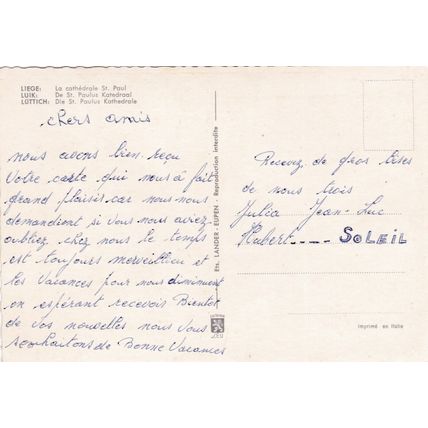 LIEGE: La cathédrale St. Paul
LUIK: De St. Paulus Katedraal
LÜTTICH: Die St. Paulus Kathedrale
chers amis
nous avons bien reçu
Votre carte qui nous à fait
grand plaisir car nous nous
demandiont si vous nous aviez
oubliez chez nous le temps
est toujours merveilleu et
les Vacances pour nous diminuent
en espérant recevoir Bientot
de vos nouvelles nous Vous
souhaitons de Bonne Vacances
Ets. LANDER - EUPEN - Reproduction interdite
Recevez de gros bises
de nous trois
Julia Jean-Luc
Hubert ---- SOLEIL
Imprimé en Italie